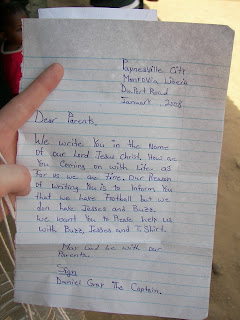 Paynesville City
Monrovia Liberia
DuPort Road
January, 2008
Dear Parents,
We write You in the Name
of our Lord Jesus Christ. How are
You Coming on with Life. as
for us we are fine. Our Reason
of writing You is to Inform You
that we have Football but we
don have Jesses and Buzz.
We want You to Please help us
with Buzz, Jesses and T. Shirt.
May God be with our
Parents.
Sign
Daniel Gray The Captain.